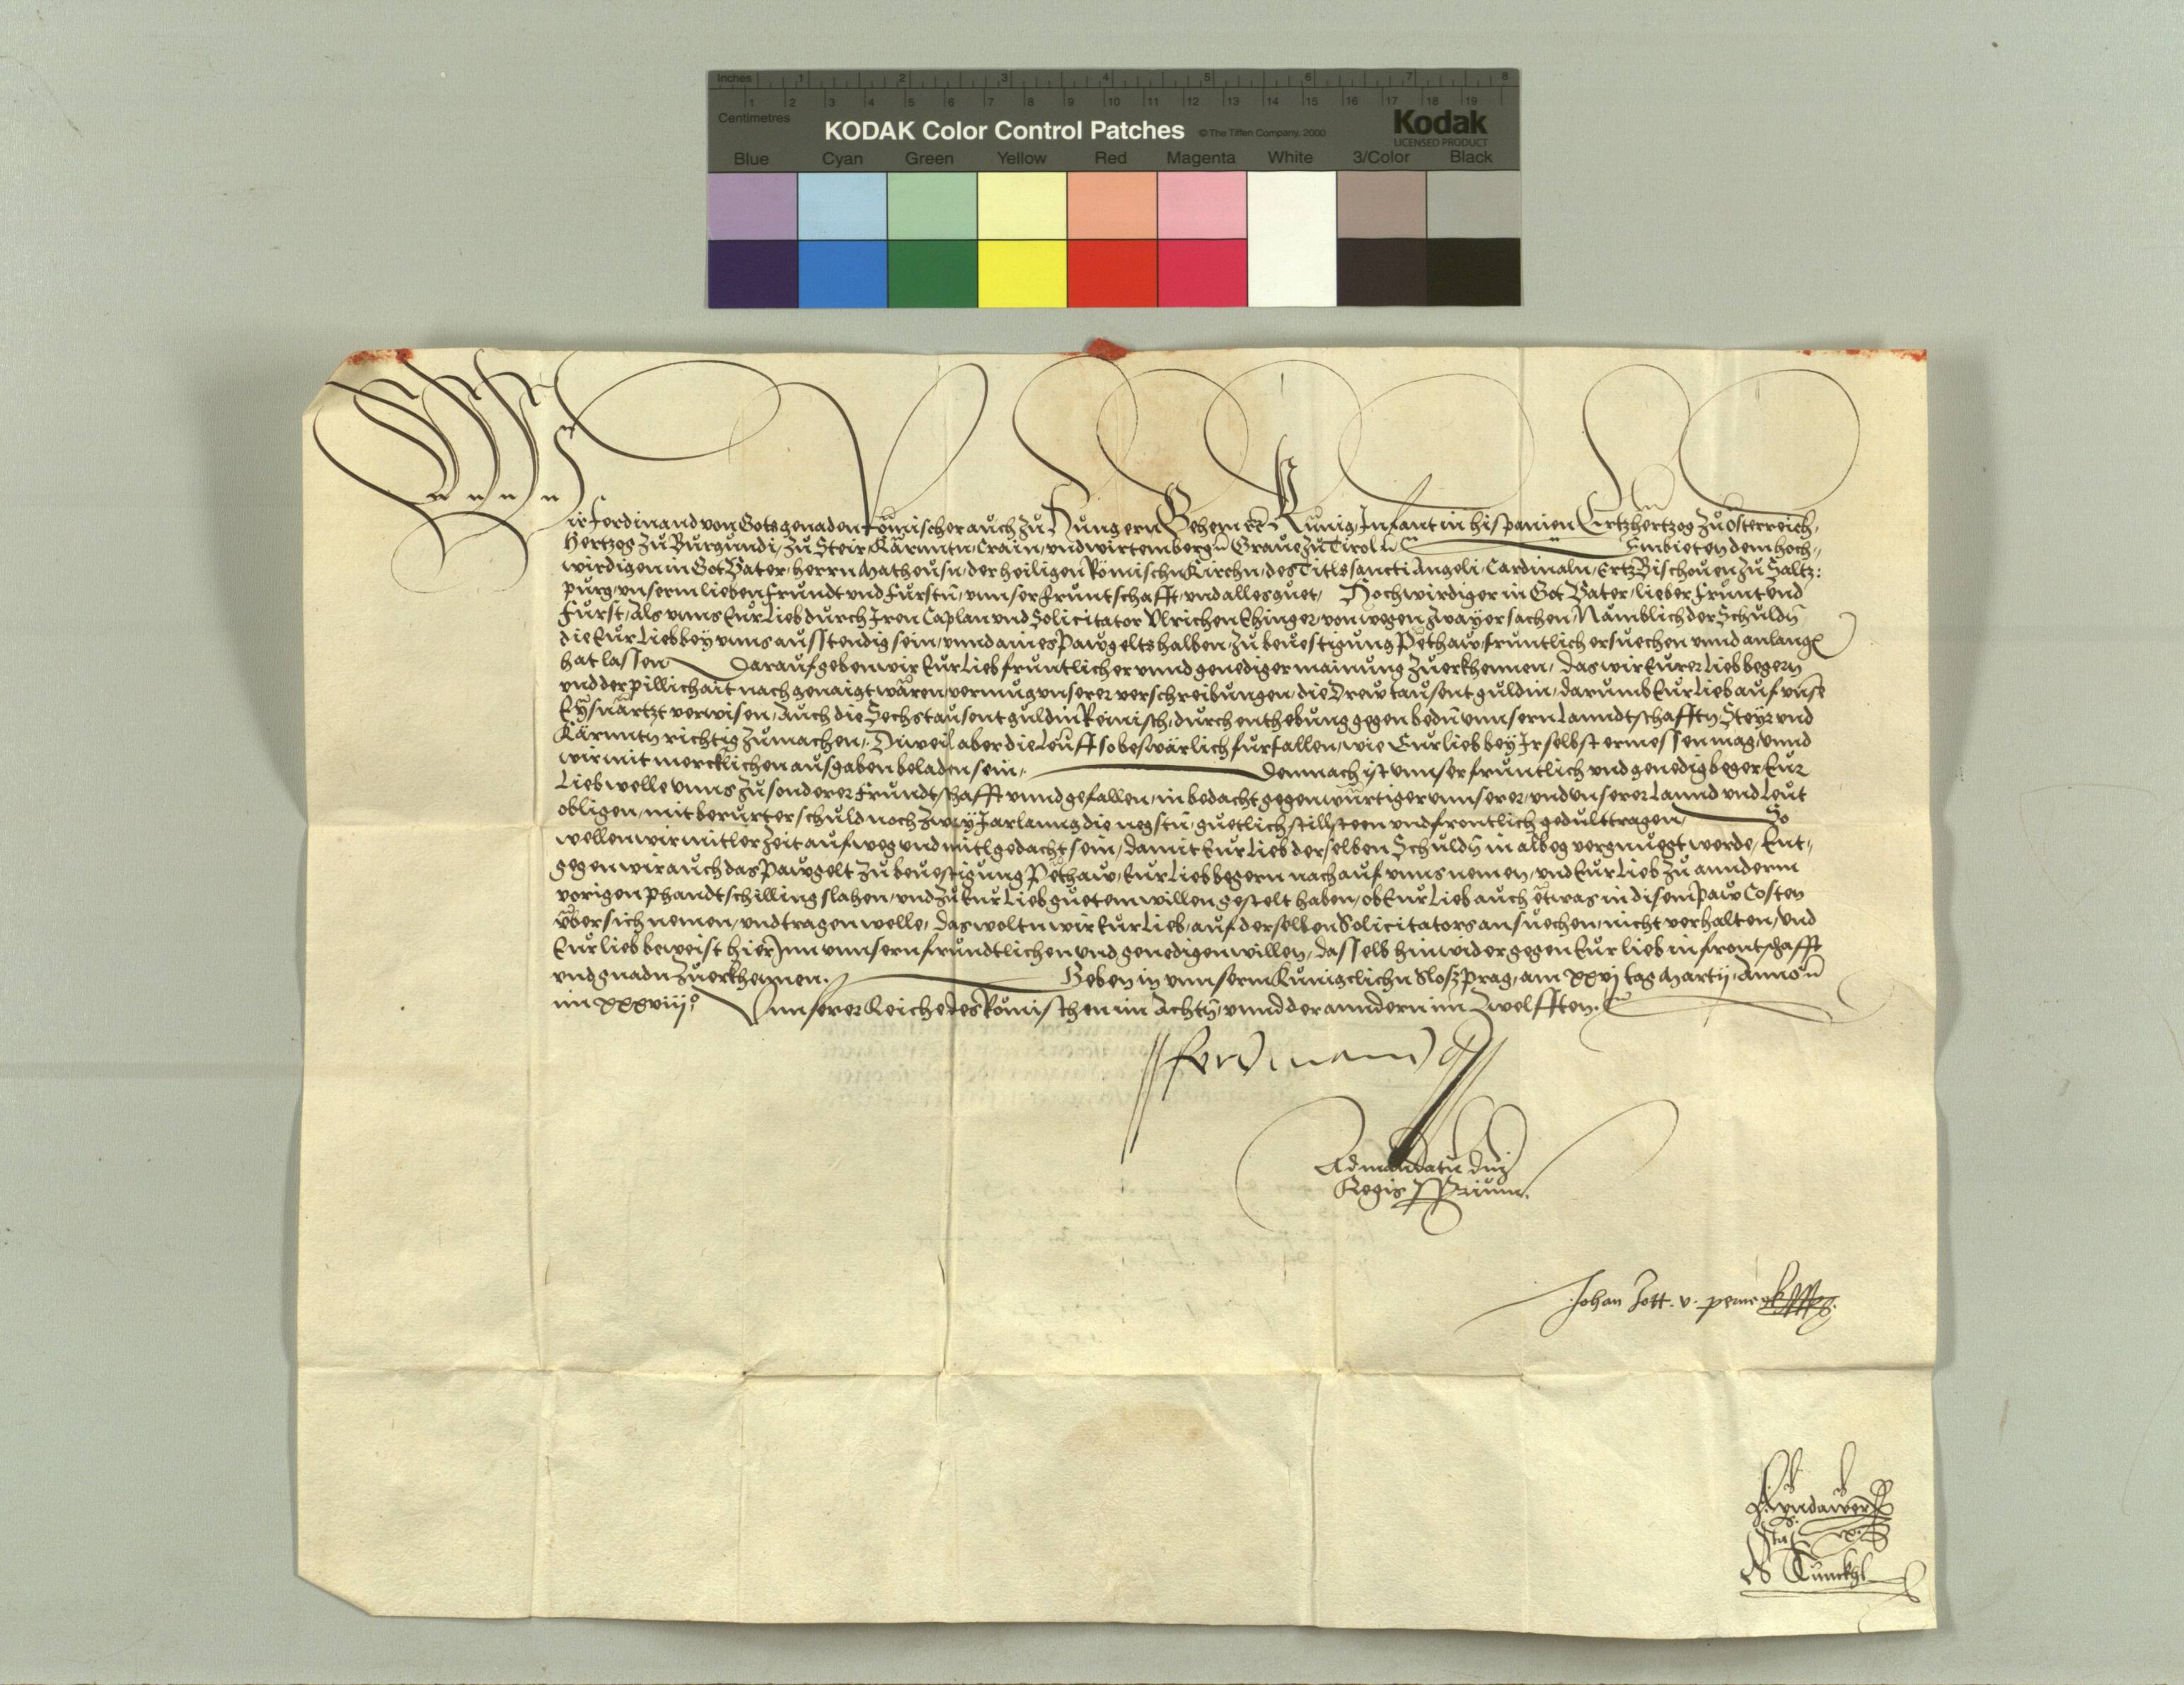 Inches 1 2 3 4 5 6 7 8
1 2 3 4 5 6 7 8 9 10 11 12 13 14 15 16 17 18 19
Centimetres
KODAK Color Control Patches © The Tiffen Company, 2000 Kodak
LICENSED PRODUCT
Blue Cyan Green Yellow Red Magenta White 3/Color Black
Wir Ferdinand von Gots genaden Römischer auch zu Hungern Behem ec Kunig, Infant in hispanien Ertzhertzog zu Osterreich,
Hertzog zu Burgundi, zu Steir, Kärnntn, Crain, vnd wirtemberg ec Graue zu Tirol ec Embieten dem hoch-
wirdigen in Got Vater, herrn Matheusn, der heiligen Römischn Kirchn, des Titls sancti Angeli, Cardinaln, Ertz Bischouen zu Saltz:
purg, vnserm lieben Frundt vnd Fürstn, vnnser Fruntschafft, vnd alles guet, Hochwirdiger in Got Vater, lieber Frunt vnd
Furst, Als vnns Eur Lieb durch Iren Caplan vnd Solicitator Vlrichen Ehinger, von wegen zwayer sachen, Nämblich der Schuldn
die Eur Lieb bey vnns ausstendig sein, vnnd aines Pawgelts halben, zu beuestigung Pethaw, fruntlich ersuechen vnnd anlangen
hat lassen Darauf geben wir Eur Lieb fruntlicher vnnd genediger mainung zuerkhennen, das wir Eurer Lieb begern
vnd der pillichait nach genaigt wären, vermug vnserer verschreibungen, die Drew tausent guldin, darumb Eur Lieb auf vnser
Eysnärtzt verwisen, Auch die Sechstausent guldin Reinisch, durch enthebung gegen bedn vnnsern Lanndtschafftn Steyr vnd
Kärnntn richtig zumachen, Diweil aber die Leuff so beswärlich furfallen, wie Eur lieb bey Ir selbst ermessen mag, vnnd
wir mit mercklichen ausgaben beladen sein, Demnach ist vnnser fruntlich vnd genedig beger, Eur
Lieb welle vnns zu sonderer Frundtschafft vnnd gefallen, in bedacht gegenwurtiger vnnserer, vnd vnserer Lannd vnd Leut
obligen, mit berurter schuld noch zway Jar lanng die negstn, guetlich stillsteen vnd fruntlich gedult tragen, So
wellen wir mitler zeit auf weg vnd mitl gedacht sein, damit Eur Lieb derselben Schuldn in albeg vergnuegt werde, Ent-
gegen wir auch das Pawgelt zu beuestigung Pethaw, Eur Lieb begern nach auf vnns nemen, vnd Eur Lieb zu annderm
vorigen phandtschilling slahen, vnd zu Eur Lieb guetem willen gestelt haben, ob Eur Lieb auch etwas in disem Paw Costen
vber sich nemen, vnd tragen welle, Das woltn wir Eur Lieb, auf derselben Solicitators ansuechen, nicht verhalten, Vnd
Eur lieb beweist hierInn vnnsern frundtlichen vnd genedigen willen, dasselb hinwider gegen Eur lieb in frontschafft
vnd gnadn zuerkhennen. Geben in vnnserm Kunigclichn Slosz Prag, am xxvj tag Martij, Anno ec
im xxxviijo Vnnserer Reiche des Römischen im Achtn, vnnd der anndern im Zwelfften.
Ferdinand
Ad mandatu dni
Regis pprium.
Johan Zott. v. perneckh
Tunckhl